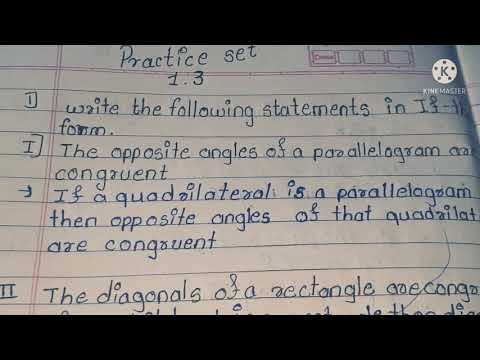 Practice set
1.3
I) write the following statements in If-th
form.
I] The opposite angles of a parallelogram are
congruent
→ If a quadrilateral is a parallelogram
then opposite angles of that quadrilat
are congruent
II The diagonals of a rectangle are congr
KINEMASTER